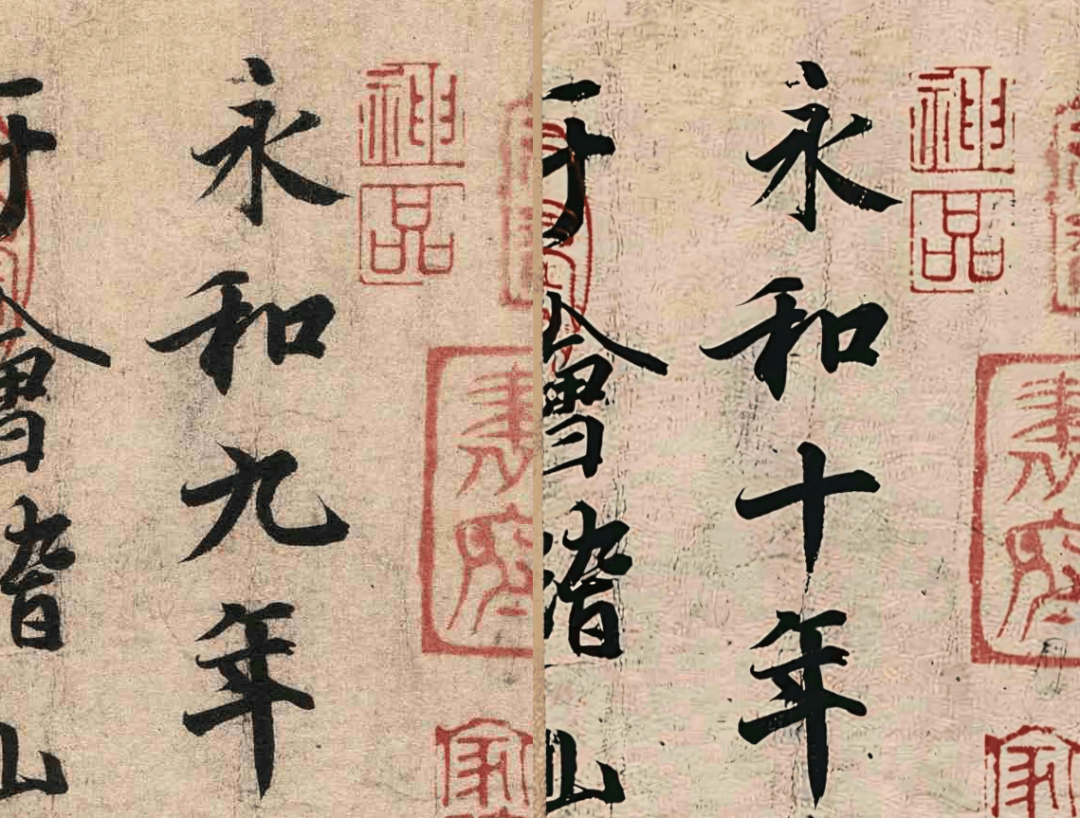 神品
永和九年
于會稽山
神品
永和十年
于會稽山